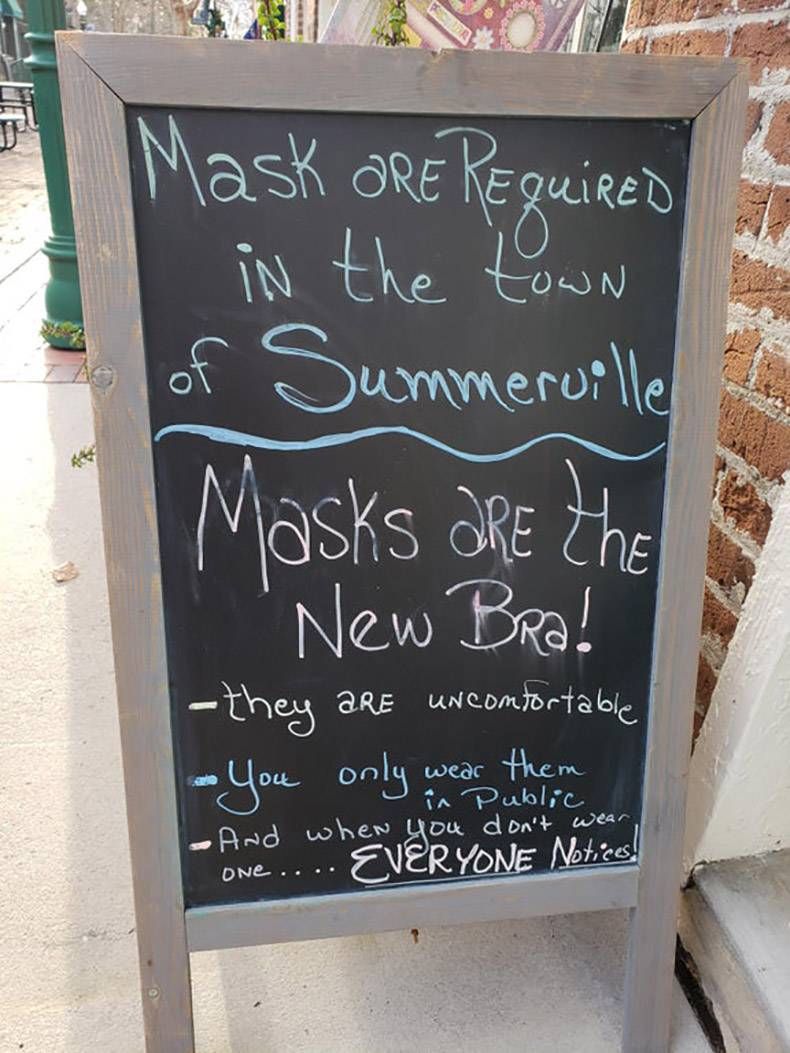 Mask are Required
in the town
of Summerville
Masks are the
New Bra!
- they are uncomfortable
- You only wear them
in Public
- And when you don't wear
one.... EVERYONE Notices!